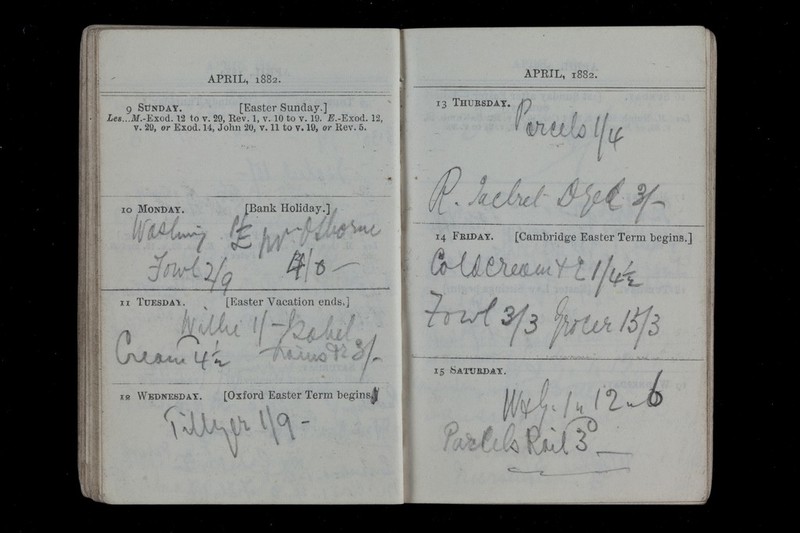 APRIL, 1882.
9 SUNDAY. [Easter Sunday.]
Les...M.-Exod. 12 to v. 29, Rev. 1, v. 10 to v. 19. E.-Exod. 12,
v. 29, or Exod. 14, John 20, v. 11 to v. 19, or Rev. 5.
10 MONDAY. [Bank Holiday.]
Washing Osborne
Fowl 2/9
11 TUESDAY. [Easter Vacation ends.]
Willie 1/- Isabel
Cream 4½ 3/-
12 WEDNESDAY. [Oxford Easter Term begins.]
Tillyer 1/9 -
APRIL, 1882.
13 THURSDAY.
Parcels 1/4
R. Jacket Dyed 3/-
14 FRIDAY. [Cambridge Easter Term begins.]
Coldcream 1/4½
Fowl 3/3 Grocer 15/3
15 SATURDAY.
12 " 6
Parcels Rail 3